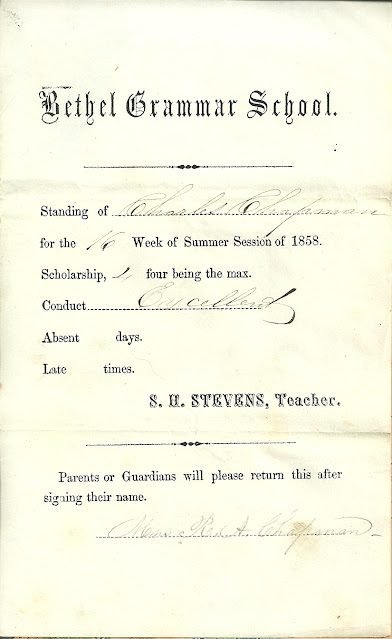 Bethel Grammar School.
Standing of Charles Chapman
for the 16 Week of Summer Session of 1858.
Scholarship, 4 four being the max.
Conduct Excellent
Absent days.
Late times.
S. H. STEVENS, Teacher.
Parents or Guardians will please return this after
signing their name.
A. Chapman